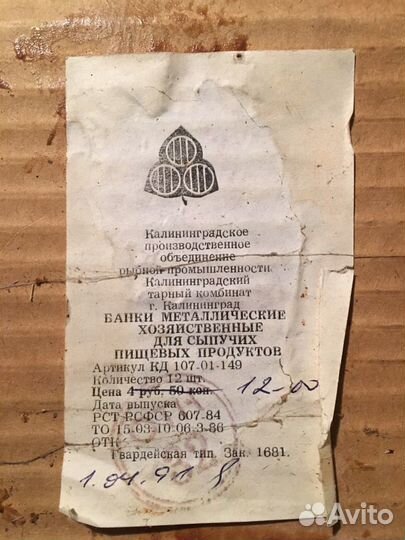 Калининградское
производственное
объединение
рыбной промышленности
Калининградский
тарный комбинат
г. Калининград
БАНКИ МЕТАЛЛИЧЕСКИЕ
ХОЗЯЙСТВЕННЫЕ
ДЛЯ СЫПУЧИХ
ПИЩЕВЫХ ПРОДУКТОВ
Артикул КД 107-01-149
Количество 12 шт.
Цена 4 руб. 50 коп. 12-00
Дата выпуска
РСТ РСФСР 607-84
ТО 15-03-10-06-3-86
ОТК
Гвардейская тип. Зак. 1681.
1.04.91
Avito